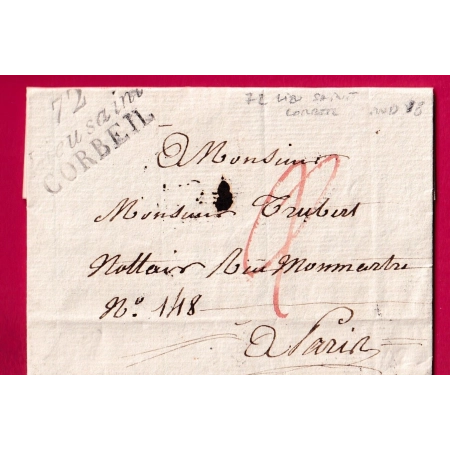 72
Lieusaint
CORBEIL
72 Lieu SAINT
CORBEIL
IND 18
A Monsieur
Monsieur Trubert
Nottair Rüe Monmartre
N.º 148
A Paris
2